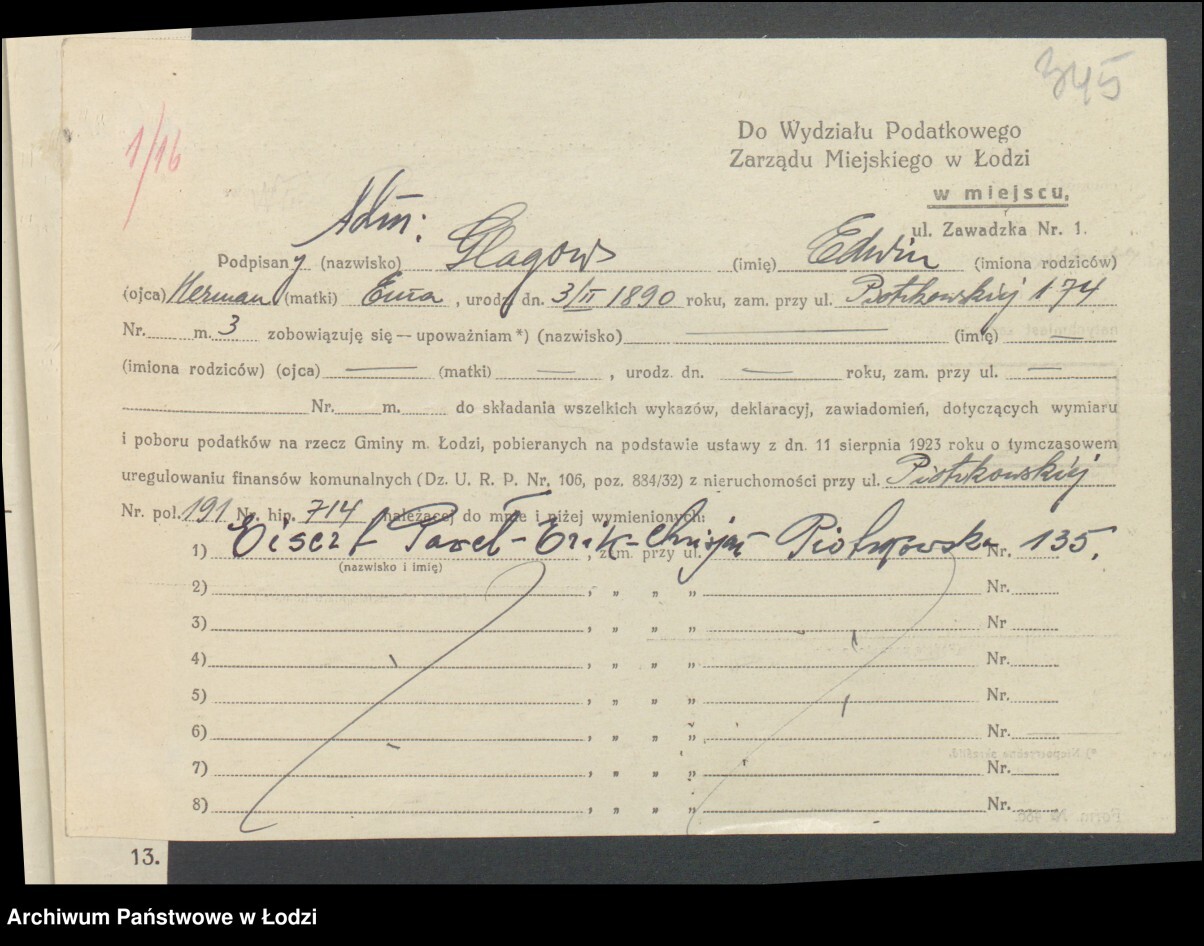 345
1/16
Do Wydziału Podatkowego
Zarządu Miejskiego w Łodzi
w miejscu,
ul. Zawadzka Nr. 1.
Adm:
Podpisany (nazwisko) Glagow (imię) Edwin (imiona rodziców)
(ojca) Herman (matki) Ema, urodz. dn. 3/II 1890 roku, zam. przy ul. Piotrkowskiej 174
Nr. m. 3 zobowiązuję się — upoważniam *) (nazwisko) — (imię) —
(imiona rodziców) (ojca) — (matki) — , urodz. dn. — roku, zam. przy ul. —
Nr. m. do składania wszelkich wykazów, deklaracyj, zawiadomień, dotyczących wymiaru
i poboru podatków na rzecz Gminy m. Łodzi, pobieranych na podstawie ustawy z dn. 11 sierpnia 1923 roku o tymczasowem
uregulowaniu finansów komunalnych (Dz. U. R. P. Nr. 106, poz. 884/32) z nieruchomości przy ul. Piotrkowskiej
Nr. pol. 191 Nr. hip. 714 należącej do mnie i niżej wymienionych:
1) Eisert Paweł-Erik- , zam. przy ul. Piotrkowska Nr. 135.
(nazwisko i imię)
2) , „ „ „ Nr.
3) , „ „ „ Nr
4) , „ „ „ Nr.
5) , „ „ „ Nr.
6) , „ „ „ Nr.
7) , „ „ „ Nr.
8) , „ „ „ Nr.
13.
Archiwum Państwowe w Łodzi